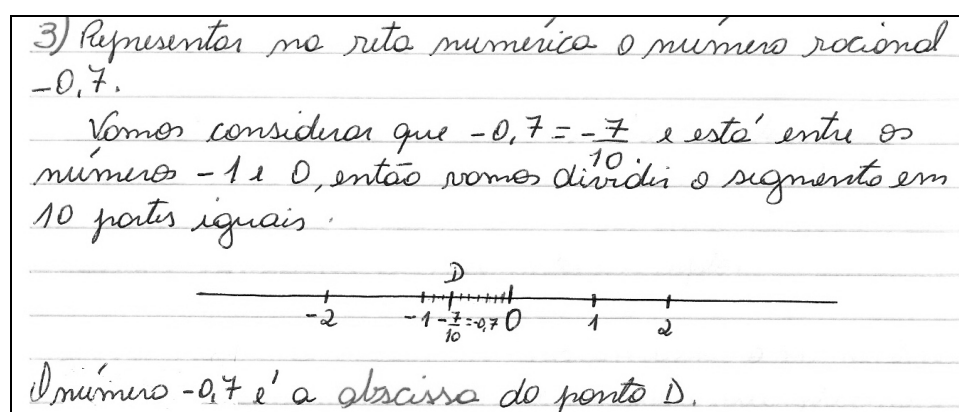 3) Representar na reta numérica o número racional
-0,7.
Vamos considerar que -0,7 = -7/10 e está entre os
números -1 e 0, então vamos dividir o segmento em
10 partes iguais.
D
-2 -1 -7/10=-0,7 0 1 2
O número -0,7 é a abscissa do ponto D.